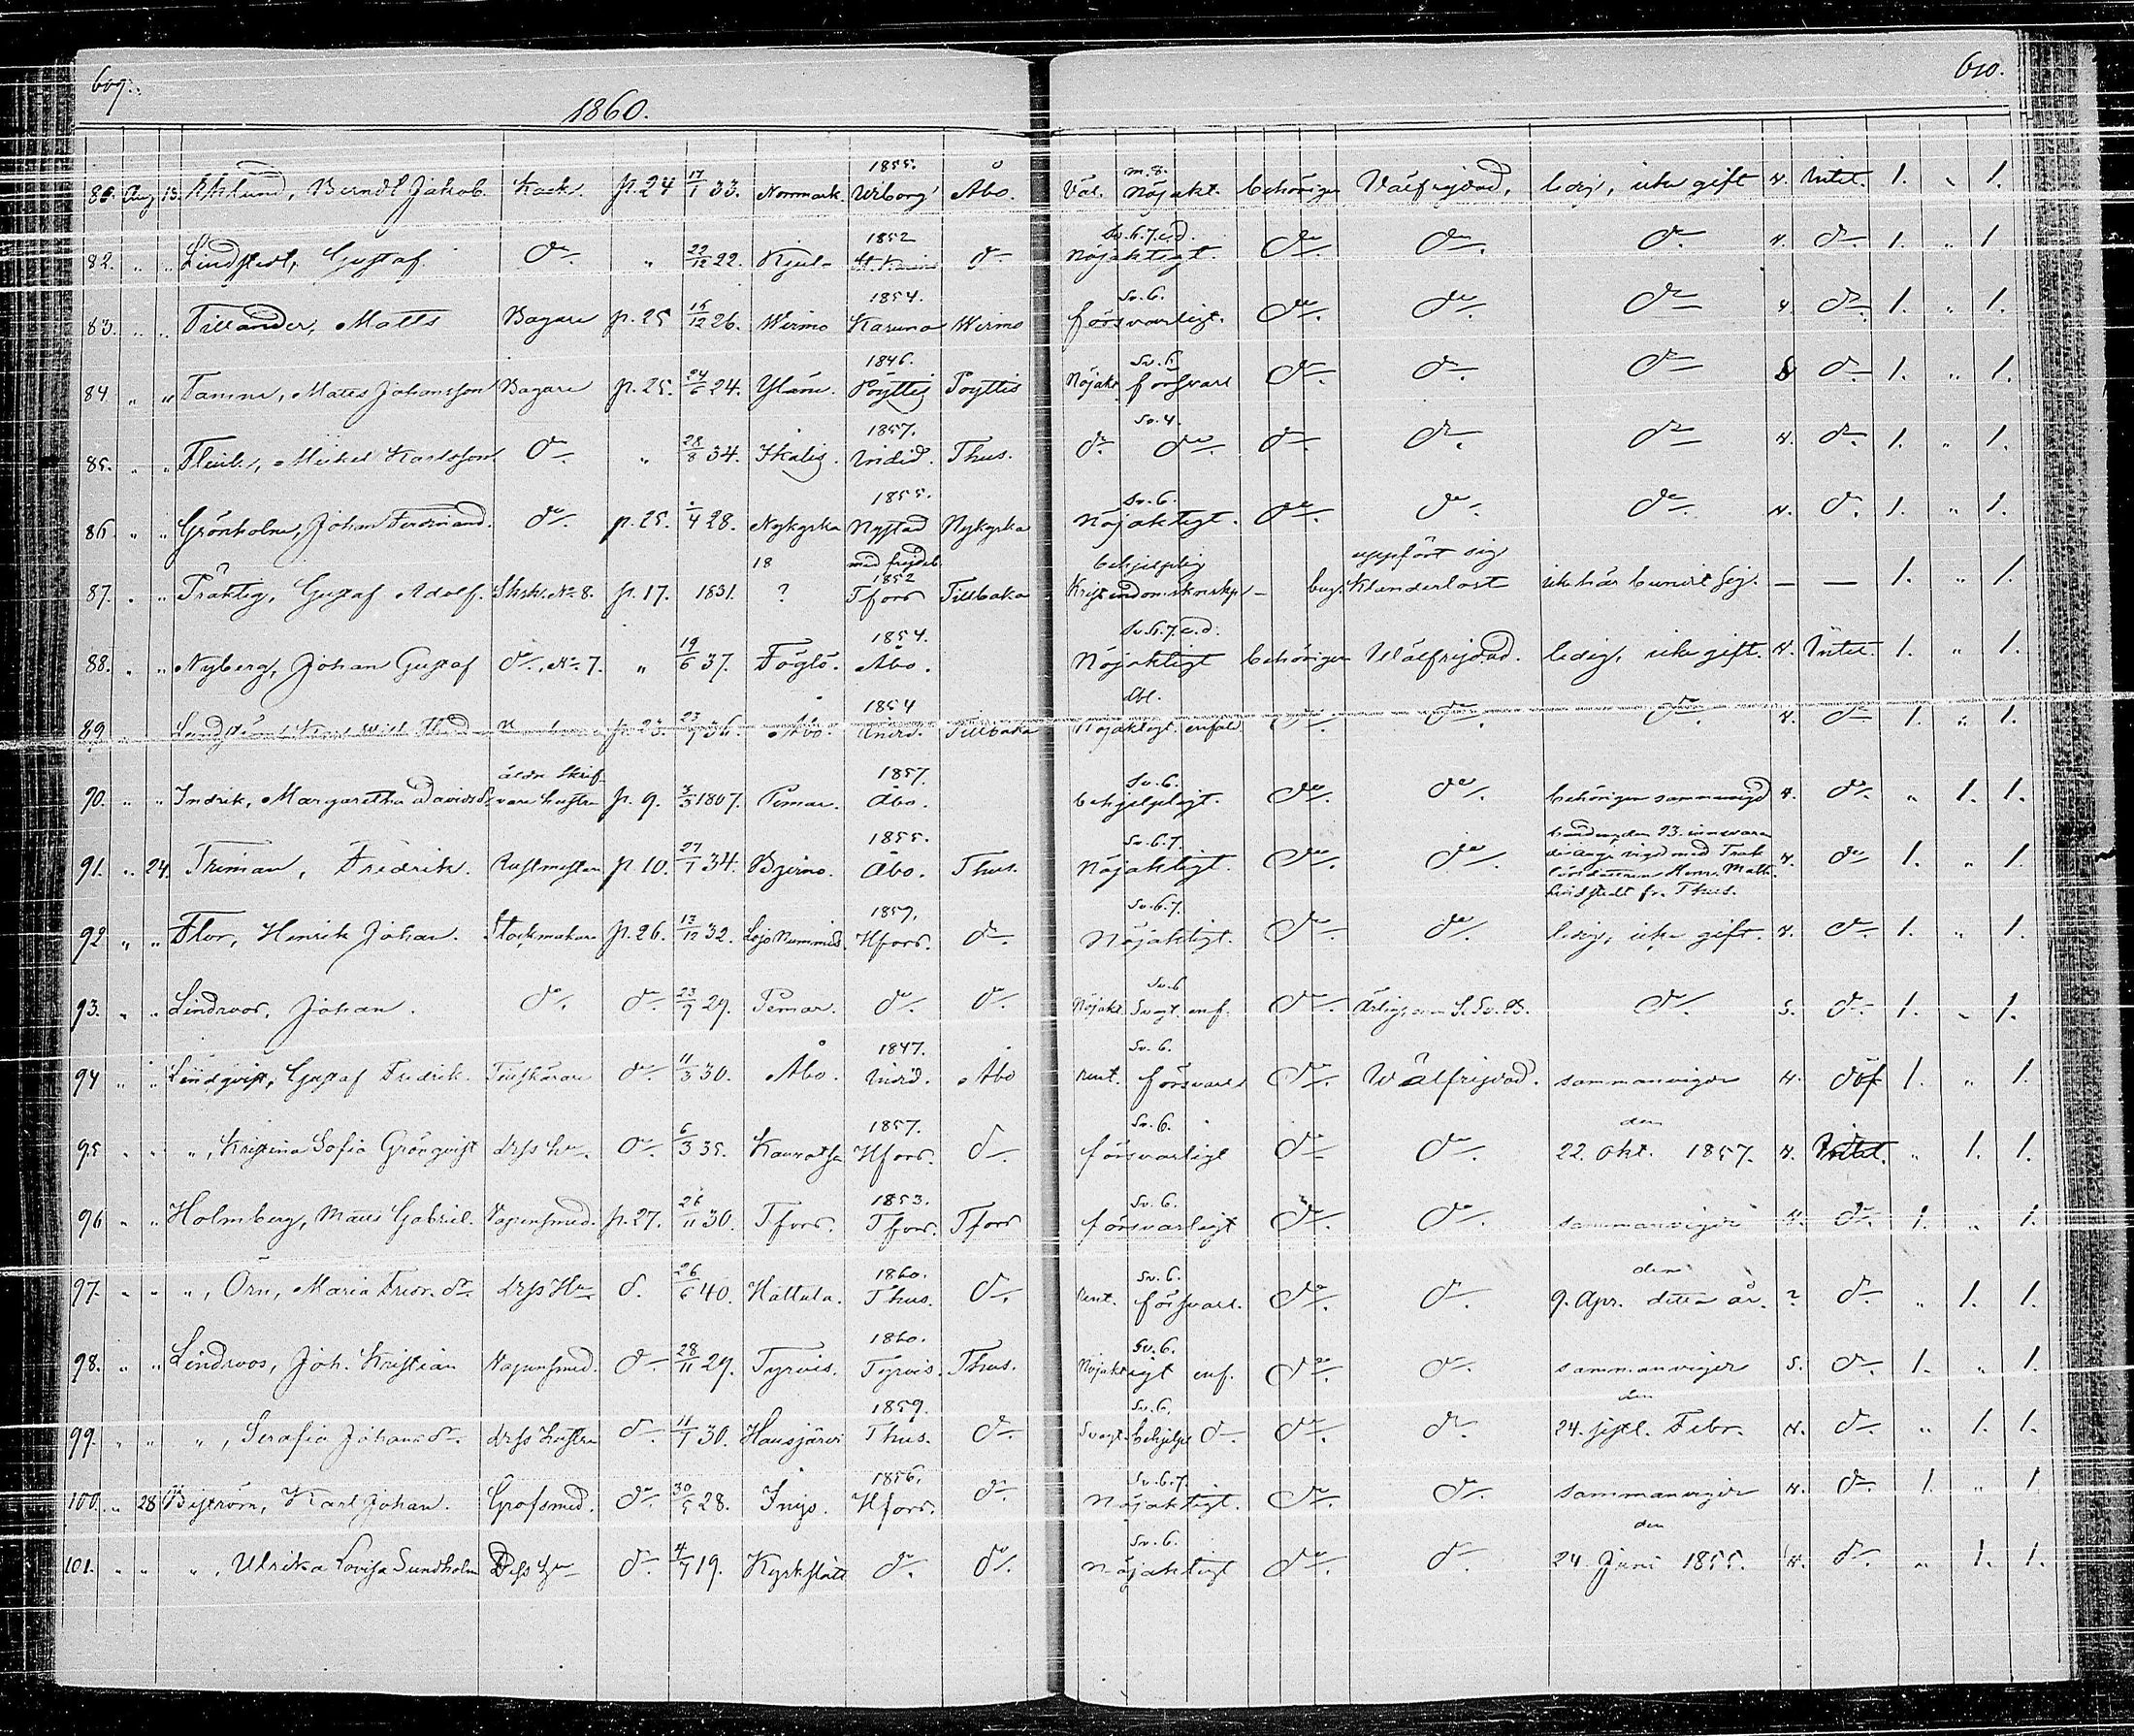 609.
610.
1860.
Aug 13. Berndt Jakob. Kock. p. 24 17/1 33. Norrmark. 1855. Wiborg Åbo. Väl. m. 8. Nöjakt. behörigen Välfrejdad, ledig, icke gift 4. Intet. 1. „ 1.
82. „ „ Lindstedt, Gustaf dº. „ 22/12 22. Kjul- 1852 St. Karins dº Sv. 6. 7. c. d. Nöjaktigt. dº. dº. dº 4. dº 1. „ 1
83. „ „ Tillander, Matts Bagare p. 25 15/12 26. Wirmo 1854. Karuna Wirmo Sv. 6. försvarligt. dº. dº. dº 4. dº. 1. „ 1.
84 „ „ Tamme, Matts Johansson Bagare p. 25. 24/6 24. Yläne. 1846. Pöyttis Pöyttis Nöjakt. Sv. 6 försvarl dº. dº. dº 8 dº 1. „ 1.
85. „ „ Flink, Mickel Karlsson dº. „ 28/8 34. Ikalis. 1857. Undid. Thus. dº Sv. 4. dº. dº. dº. dº 4. dº. 1. „ 1.
86. „ „ Grönholm, Johan Ferdinand. dº. p. 25. /4 28. Nykyrka 1855. Nystad Nykyrka Sv. 6. Nöjaktigt. dº. dº. dº. 4. dº. 1. „ 1.
87. „ „ Präktig, Gustaf Adolf. Skrk. No 8. p. 17. 1831. 18 ? med frejdeb. 1852 Tfors Tillbaka behjelplig Kristendomskunskp – beg. uppfört sig Klanderlöst icke här besvärt sig. — — 1. „ 1.
88. „ „ Nyberg, Johan Gustaf dº. No 7. „ 19/6 37. Föglö. 1854. Åbo. Sv. 6. 7. c. d. Nöjaktigt behörigen Wälfrejdad. ledig, icke gift. 4. Intet. 1. „ 1.
89 „ p. 23. 23/7 36. Åbo. 1854 Undid. Tillbaka Abl. Nöjaktigt enfald dº. dº. dº. 4. dº 1. „ 1.
90. „ „ Indrik, Margaretha Davidsdr äldre Skrifvare hustru p. 9. 3/3 1807. Pemar. 1857. Åbo. Sv. 6. behjelpligt. dº. dº. behörigen sammanvigd 4. dº. „ 1. 1.
91. „ 24. Triman, Fredrik. Rustmästare p. 10. 27/7 34. Bjerno. 1855. Åbo. Thus. Sv. 6. 7. Nöjaktigt. dº. dº den 23. vigd med Lindstedt fr. Thus. 4. dº 1. „ 1.
92 „ „ Flor, Henrik Johan. Stockmakare p. 26. 13/12 32. Lojo Nummis. 1859. Hfors. dº. Sv. 6. 7. Nöjaktigt. dº. dº. ledig, icke gift. 4. dº 1. „ 1.
93. „ „ Lindroos, Johan. dº. dº 23/9 29. Pemar. dº. dº. Nöjakt. Sv. 6 Svagt. enf. dº. dº. 5. dº. 1. „ 1.
94 „ „ Lindqvist, Gustaf Fredrik. dº 11/3 30. Åbo. 1847. Undid. Åbo rent. Sv. 6. försvarl dº. Wälfrejdad. sammanvigde 4. döf 1. „ 1.
95 „ „ „, Kristina Sofia Grönqvist drss hu. dº. 6/3 35. Kauvatsa 1857. Hfors. dº. Sv. 6. försvarligt dº dº. den 22. Okt. 1857. 4. Intet. „ 1. 1.
96 „ „ Holmberg, Matts Gabriel. Vapensmed. p. 27. 26/11 30. Tfors. 1853. Tfors. Tfors Sv. 6. försvarligt dº. dº. sammanvigde 4. dº. 1. „ 1.
97. „ „ „, Örn, Maria Fredr. dr drss Hu. dº. 26/6 40. Hattula. 1860. Thus. dº. rent. Sv. 6. försvarl. dº. dº. den 9. Apr. detta år. ? dº. „ 1. 1.
98. „ „ Lindroos, Joh. Kristian Vapensmed. dº 28/11 29. Tyrvis. 1860. Tyrvis. Thus. Nöjaktigt Sv. 6. enf. dº. dº. sammanvigde 5. dº. 1. „ 1.
99. „ „ „, Serafia Johansdr. drss hustru dº 11/1 30. Hausjärvi 1859. Thus. dº. Svagt. Sv. 6. behjelpl dº. dº. dº. den 24. sistl. Febr. 4. dº. „ 1. 1.
100. „ 28 Biström, Karl Johan. Grofsmed. dº. 30/5 28. Ingo. 1856. Hfors. dº. Sv. 6. 7. Nöjaktigt. dº. dº. sammanvigde 4. dº. 1. „ 1
101. „ „ „, Ulrika Lovisa Sundholm Dess hu dº. 4/7 19. Kyrkslätt dº. dº. Sv. 6. Nöjaktigt dº. dº den 24. Juni 1855. 4. dº. „ 1. 1.